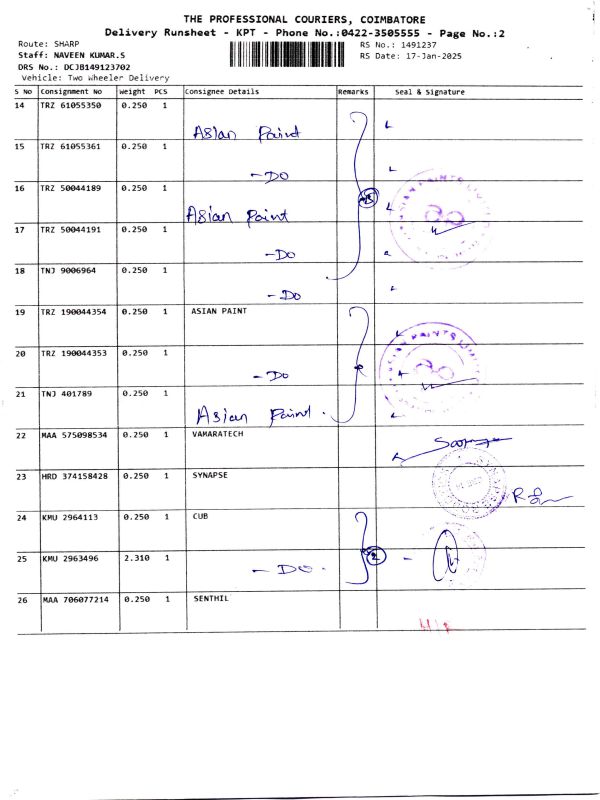 THE PROFESSIONAL COURIERS, COIMBATORE
Delivery Runsheet - KPT - Phone No.:0422-3505555 - Page No.:2
Route: SHARP
RS No.: 1491237
Staff: NAVEEN KUMAR.S
RS Date: 17-Jan-2025
DRS No.: DCJB149123702
Vehicle: Two Wheeler Delivery
S No Consignment No Weight PCS Consignee Details Remarks Seal & Signature
14 TRZ 61055350 0.250 1
Asian Paint
15 TRZ 61055361 0.250 1
- DO
16 TRZ 50044189 0.250 1
Asian Paint
17 TRZ 50044191 0.250 1
- DO
18 TNJ 9006964 0.250 1
- DO
19 TRZ 190044354 0.250 1 ASIAN PAINT
20 TRZ 190044353 0.250 1
- DO
21 TNJ 401789 0.250 1
Asian Paint.
22 MAA 575098534 0.250 1 VAMARATECH
23 HRD 374158428 0.250 1 SYNAPSE
24 KMU 2964113 0.250 1 CUB
25 KMU 2963496 2.310 1
- DO. 2
26 MAA 706077214 0.250 1 SENTHIL